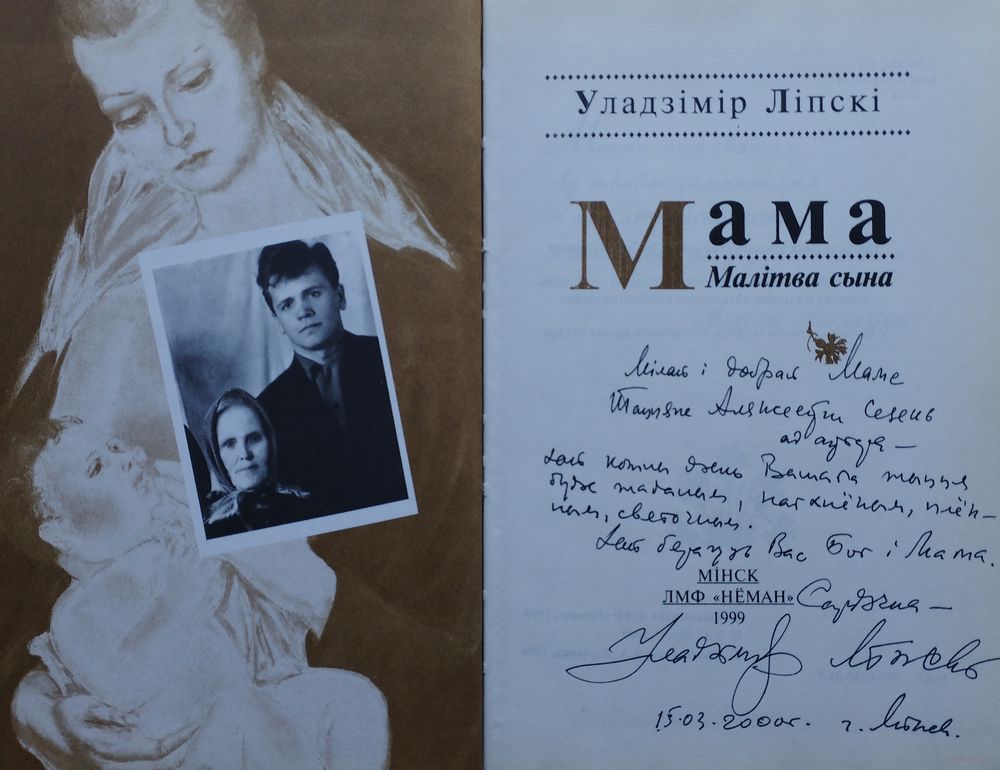 Уладзімір Ліпскі
Мама
Малітва сына
Мілай і добрай Маме
Таццяне Аляксееўне Сезень
ад аўтара —
Хай кожны дзень Вашага жыцця
будзе жаданым, натхнёным, плён-
ным, светочным!
Хай беражэ Вас Бог і Мама.
МІНСК
ЛМФ «НЁМАН»
1999
Сардэчна —
Уладзімір Ліпскі
15.03.2000г. г. Мінск.